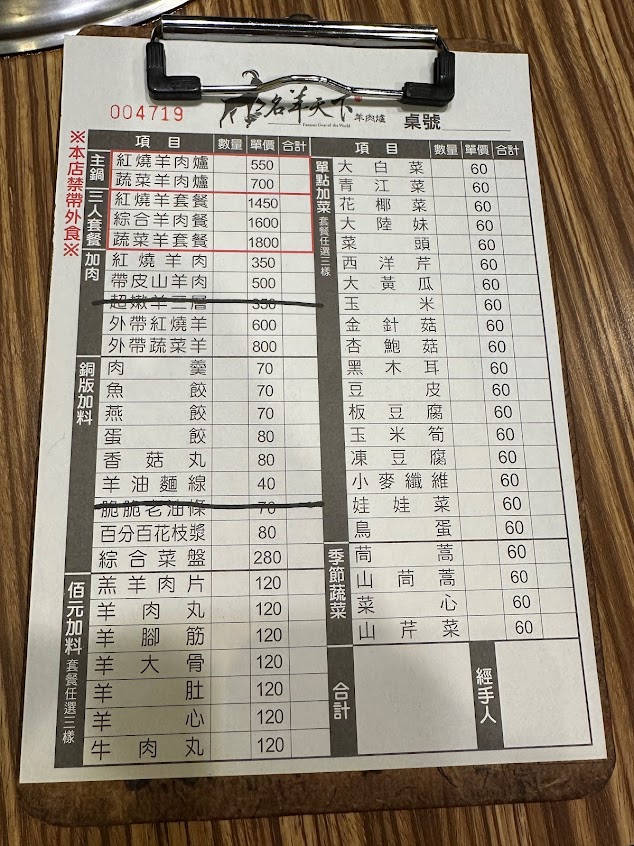 004719
名羊天下 羊肉爐 桌號
※本店禁帶外食※
項目 數量 單價 合計
主鍋
紅燒羊肉爐 550
蔬菜羊肉爐 700
三人套餐
紅燒羊套餐 1450
綜合羊套餐 1600
蔬菜羊套餐 1800
加肉
紅燒羊肉 350
帶皮山羊肉 500
超嫩羊三層 350
外帶紅燒羊 600
外帶蔬菜羊 800
銅版加料
肉羹 70
魚餃 70
燕餃 70
蛋餃 80
香菇丸 80
羊油麵線 40
脆脆老油條 70
百分百花枝漿 80
綜合菜盤 280
佰元加料 套餐任選三樣
羔羊肉片 120
羊肉丸 120
羊腳筋 120
羊大骨 120
羊肚 120
羊心 120
牛肉丸 120
項目 數量 單價 合計
單點加菜 套餐任選三樣
大白菜 60
青江菜 60
花椰菜 60
大陸妹 60
菜頭 60
西洋芹 60
大黃瓜 60
玉米 60
金針菇 60
杏鮑菇 60
黑木耳 60
豆皮 60
板豆腐 60
玉米筍 60
凍豆腐 60
小麥纖維 60
娃娃菜 60
鳥蛋 60
季節蔬菜
茼蒿 60
山茼蒿 60
菜心 60
山芹菜 60
合計
經手人